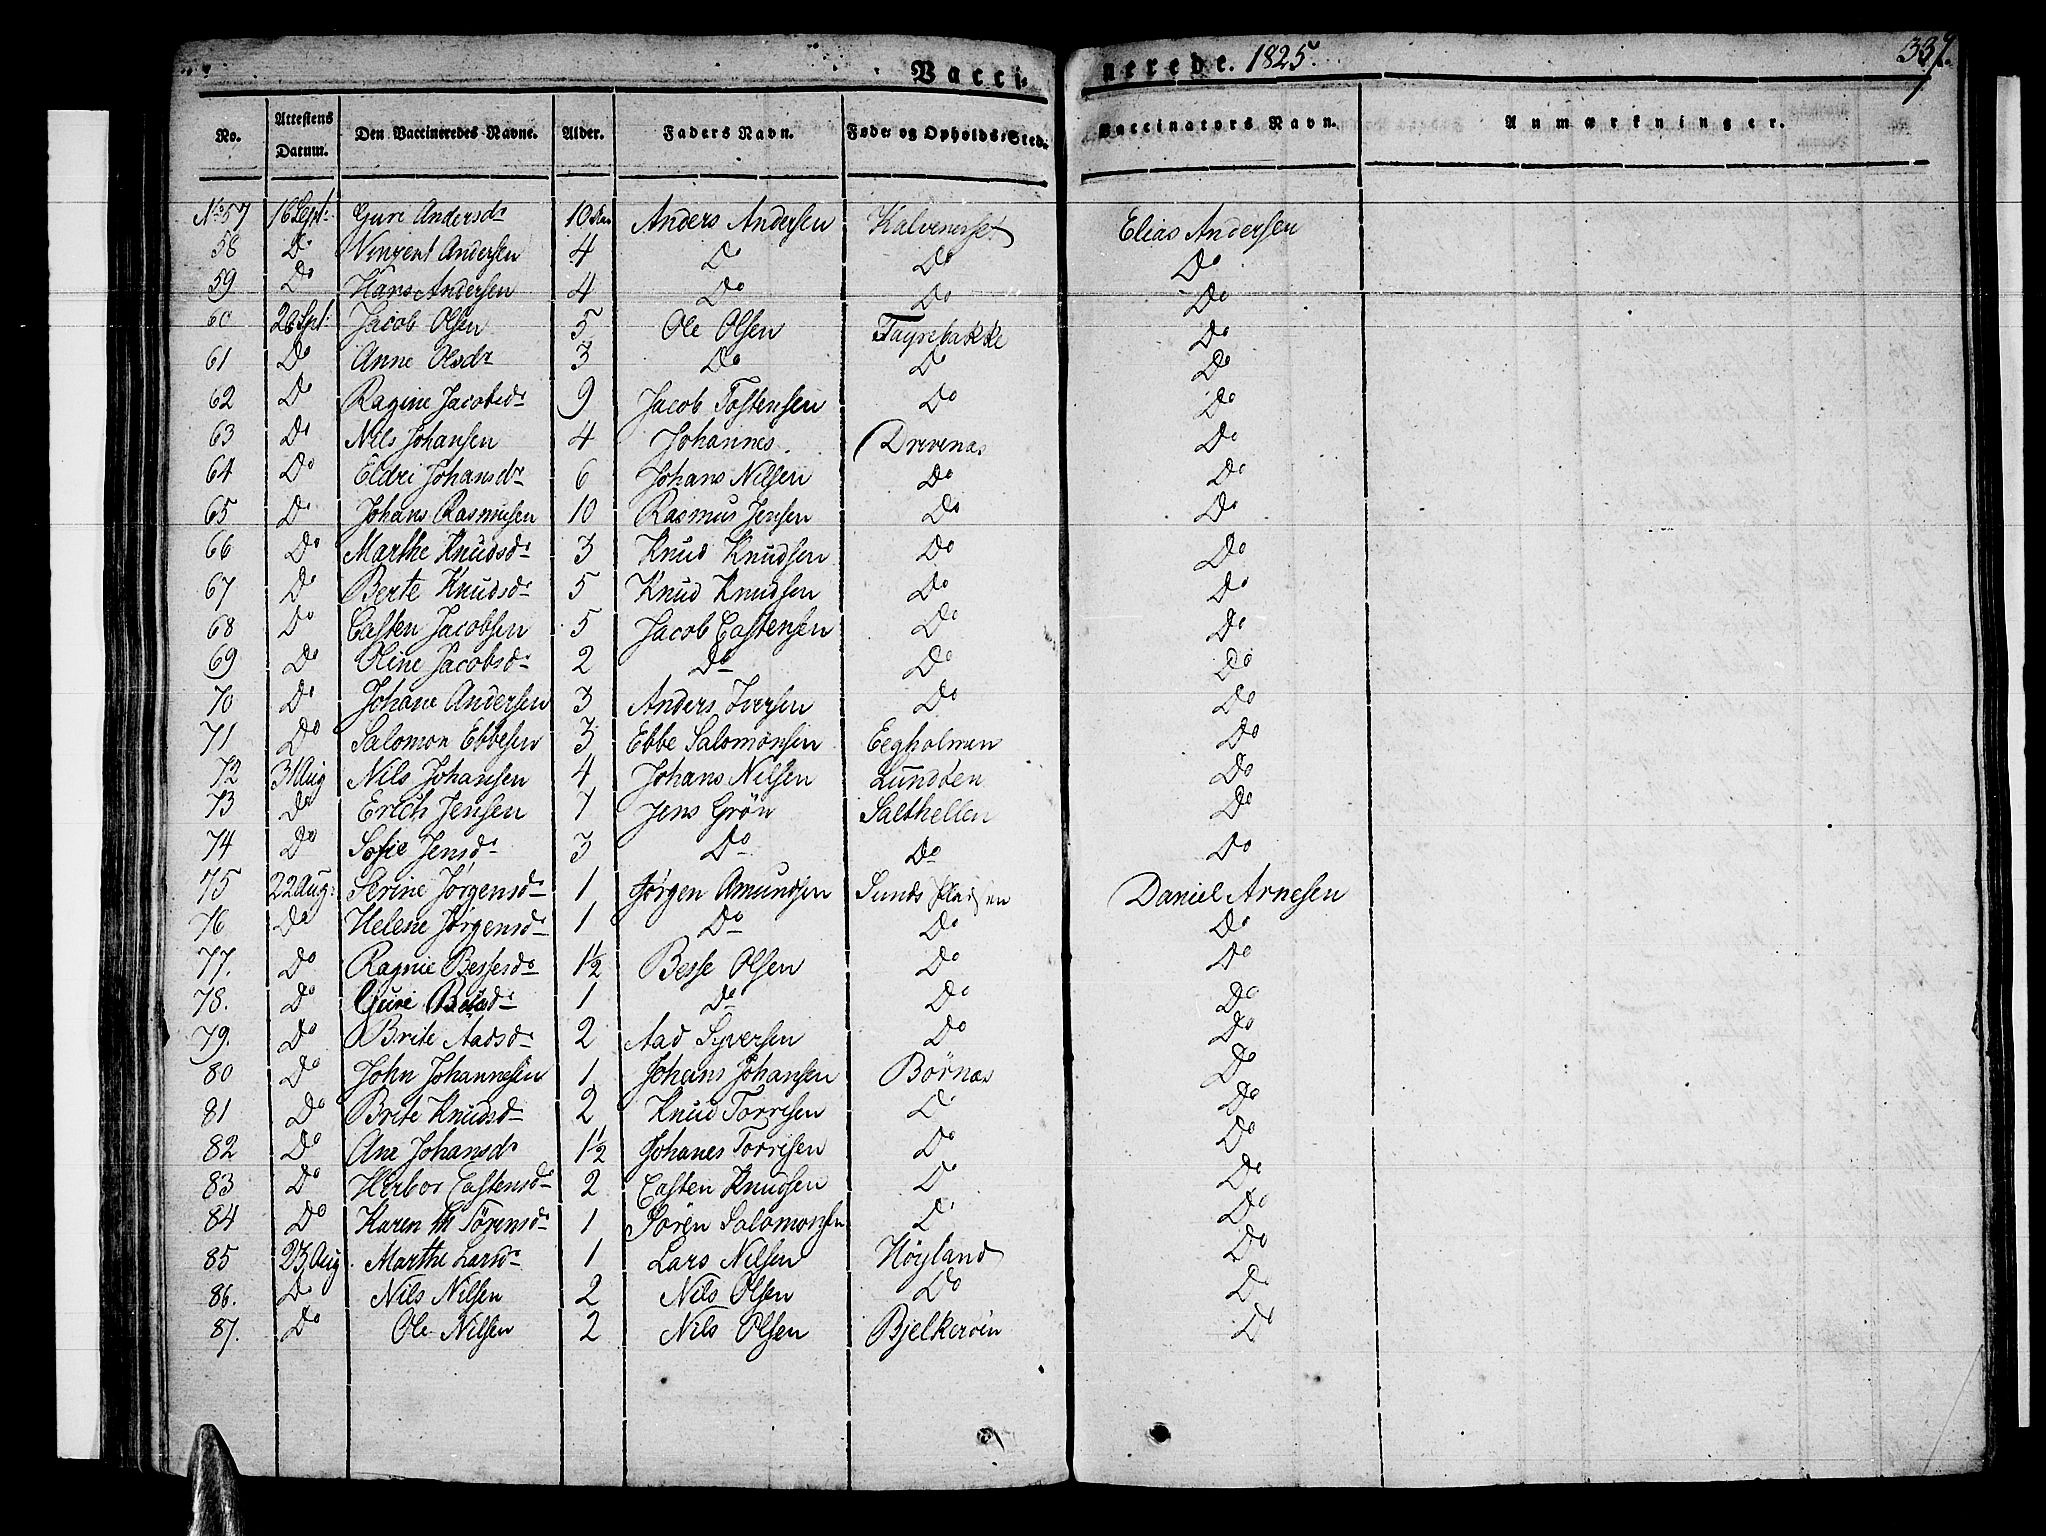 Vaccinerede. 1825. 337.
No. Attestens Datum. Den Vaccineredes Navne. Alder. Faders Navn. Føde- og Opholds-Sted. Vaccinators Navn. Anmærkninger.
No 57 16 Sept: Guri Andersdr 10 Anders Andersen Elias Andersen
58 Do Vingent Andersen 4 Do Do Do
59 Do Hans Andersen 4 Do Do Do
60 26 Spt: Jacob Olsen 5 Ole Olsen Fayrebakke Do
61 Do Anne Olsdr 3 Do Do Do
62 Do Ragine Jacobsdr 9 Jacob Tostensen Do Do
63 Do Nils Johansen 4 Johannes Drevenæs Do
64 Do Eldri Johansdr 6 Johans Nilsen Do Do
65 Do Johans Rasmusen 10 Rasmus Jensen Do Do
66 Do Marthe Knudsdr 3 Knud Knudsen Do Do
67 Do Berte Knudsdr 5 Knud Knudsen Do Do
68 Do Casten Jacobsen 5 Jacob Castensen Do Do
69 Do Oline Jacobsdr 2 Do Do Do
70 Do Johane Andersen 3 Anders Iversen Do Do
71 Do Salomon Ebbesen 3 Ebbe Salomonsen Eegholmen Do
72 31 Aug Nils Johansen 4 Johans Nilsen Lundøen Do
73 Do Erich Jensen 7 Jens Grön Salthellen Do
74 Do Sofie Jensdr 3 Do Do Do
75 22 Aug: Serine Jørgensdr 1 Jørgen Amundsen Sunds Pladsen Daniel Arnesen
76 Do Helene Jørgensdr 1 Do Do Do
77. Do Ragnie Bessesdr 1½ Besse Olsen Do Do
78. Do Guri 1 Do Do Do
79. Do Brite Aadsdr 2 Aad Syversen Do Do
80 Do John Johannesen 1 Johans Johansen Börnæs Do
81 Do Brite Knudsdr 2 Knud Torresen Do Do
82 Do Ane Johansdr 1½ Johanes Torresen Do Do
83 Do Herbor Castensdr 2 Casten Knudsen Do Do
84 Do Karen M Sörensdr 1 Sören Salomonsen Do Do
85 23 Aug Marthe Larsdr 1 Lars Nilsen Höyland Do
86. Do Nils Nilsen 2 Nils Olsen Do Do
87. Do Ole Nilsen 2 Nils Olsen Bjelkeröen Do